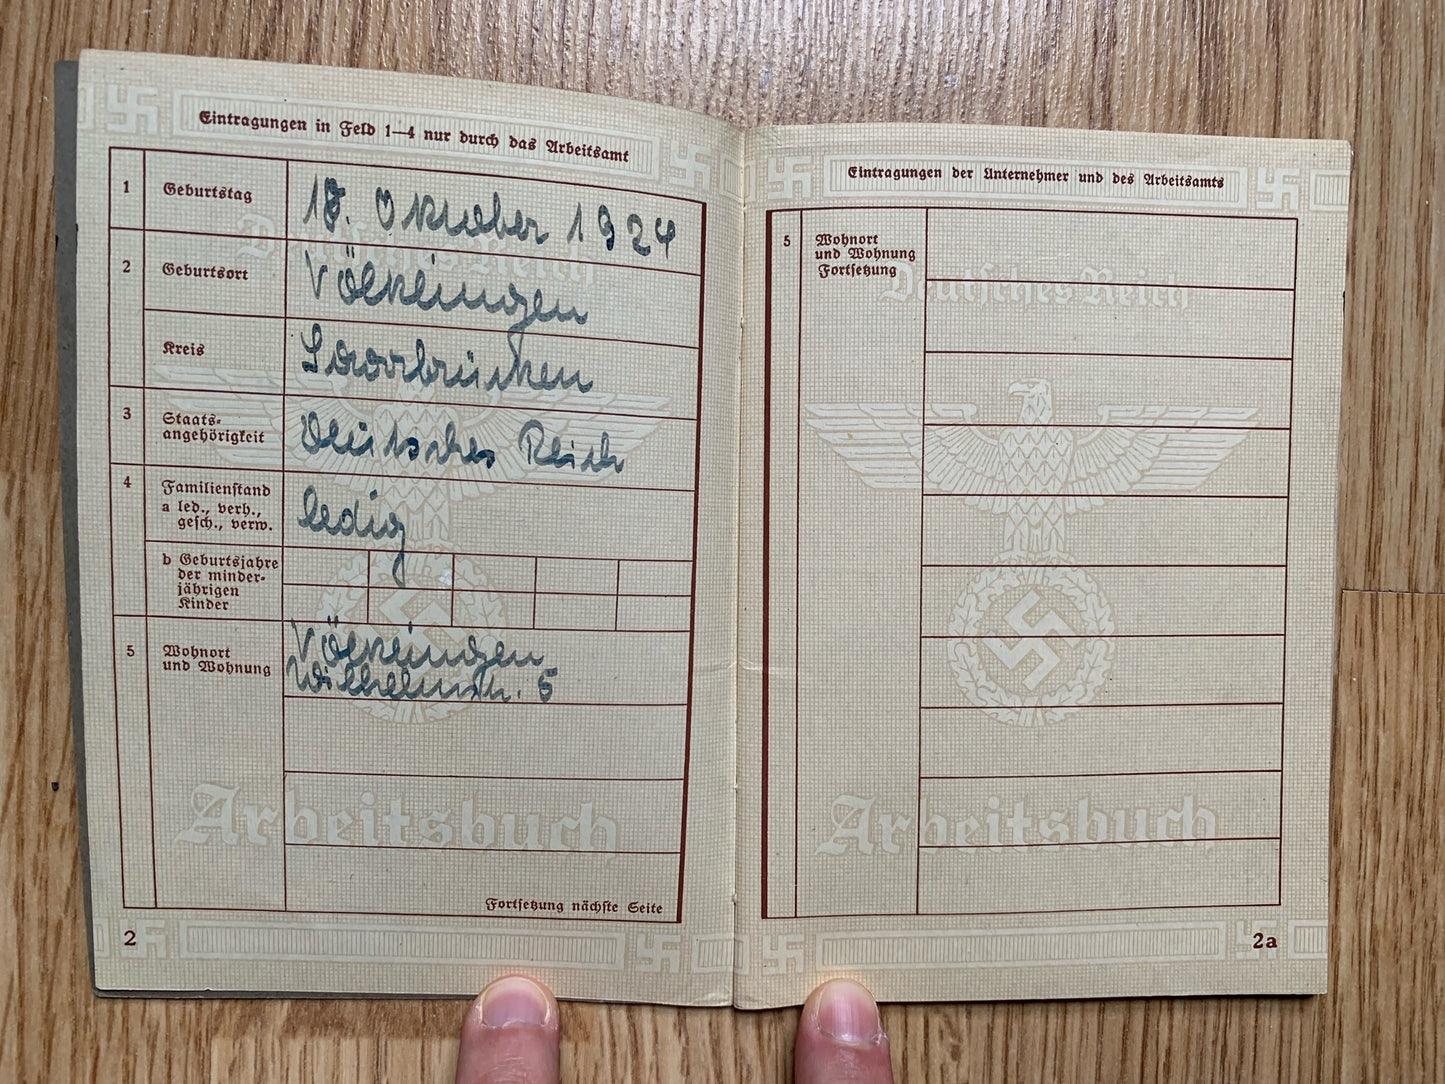 Eintragungen in Feld 1—4 nur durch das Arbeitsamt
1 Geburtstag
Oktober 1924
2 Geburtsort Völklingen
Kreis Saarbrücken
3 Staats-
angehörigkeit
Deutsches Reich
4 Familienstand
a led., verh.,
gesch., verw.
ledig
b Geburtsjahre
der minder-
jährigen
Kinder
5 Wohnort
und Wohnung
Völklingen
Wilhelmstr. 5
Fortsetzung nächste Seite
2
Deutsches Reich
Arbeitsbuch
Eintragungen der Unternehmer und des Arbeitsamts
5 Wohnort
und Wohnung
Fortsetzung
Deutsches Reich
Arbeitsbuch
2a